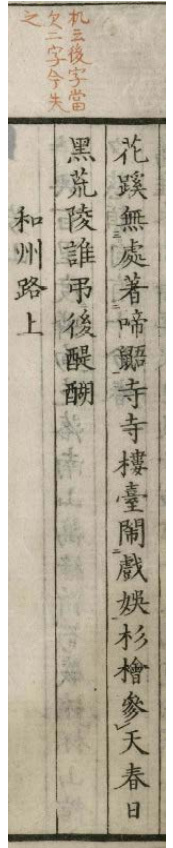 机云後字當
欠二字今失
之
花蹊無處著啼鼯寺寺樓臺鬧戲娛杉檜參天春日
黑荒陵誰弔後醍醐
和州路上